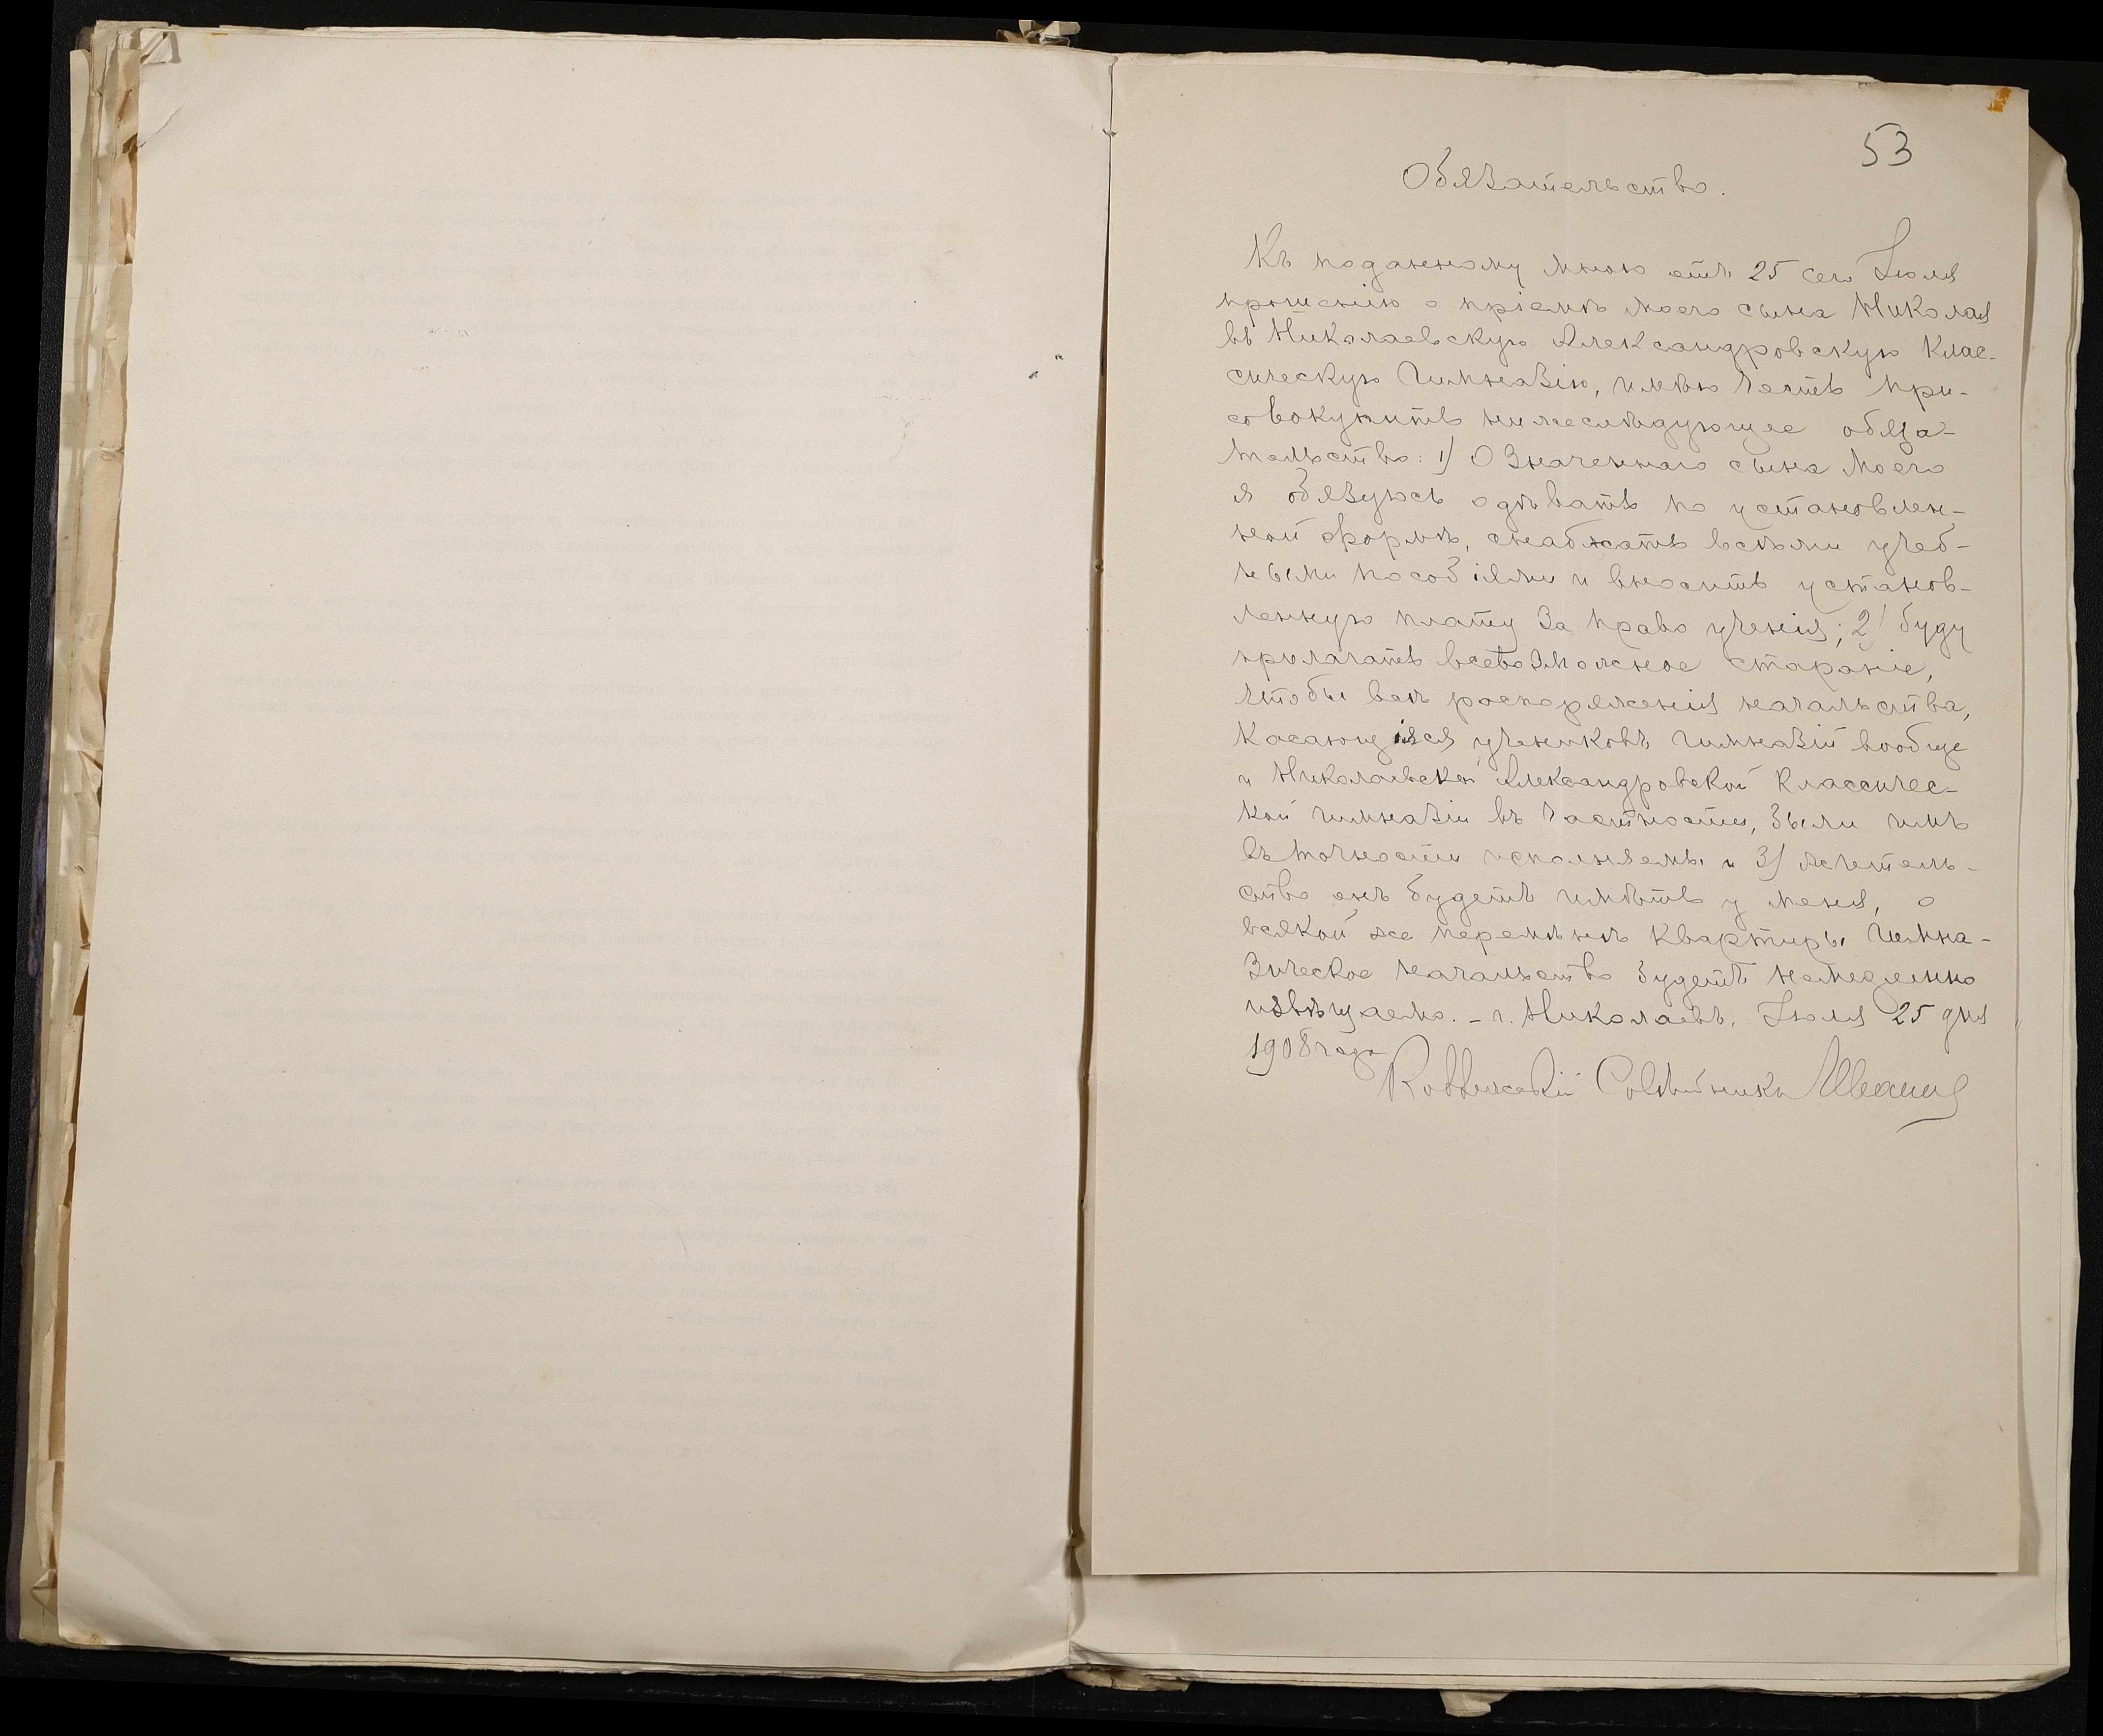 53
Обязательство.
Къ поданному мною отъ 25 сего Іюля
прошенію о пріемѣ моего сына Николая
въ Николаевскую Александровскую Клас-
сическую Гимназію, имѣю честь при-
совокупить нижеслѣдующее обяза-
тельство: 1) Означеннаго сына моего
я обязуюсь одѣвать по установлен-
ной формѣ, снабжать всѣми учеб-
ными пособіями и вносить установ-
ленную плату за право ученія; 2) буду
прилагать всевозможное стараніе,
чтобы всѣ распоряженія начальства,
касающіяся учениковъ гимназій вообще
и Николаевской Александровской Классичес-
кой гимназіи въ частности, были имъ
въ точности исполняемы и 3) жительь-
ство онъ будетъ имѣть у меня, о
всякой же перемѣнѣ квартиры Гимна-
зическое начальство будетъ немедленно
извѣщаемо. - г. Николаевъ. Іюля 25 дня
1908 года
Совѣтникъ